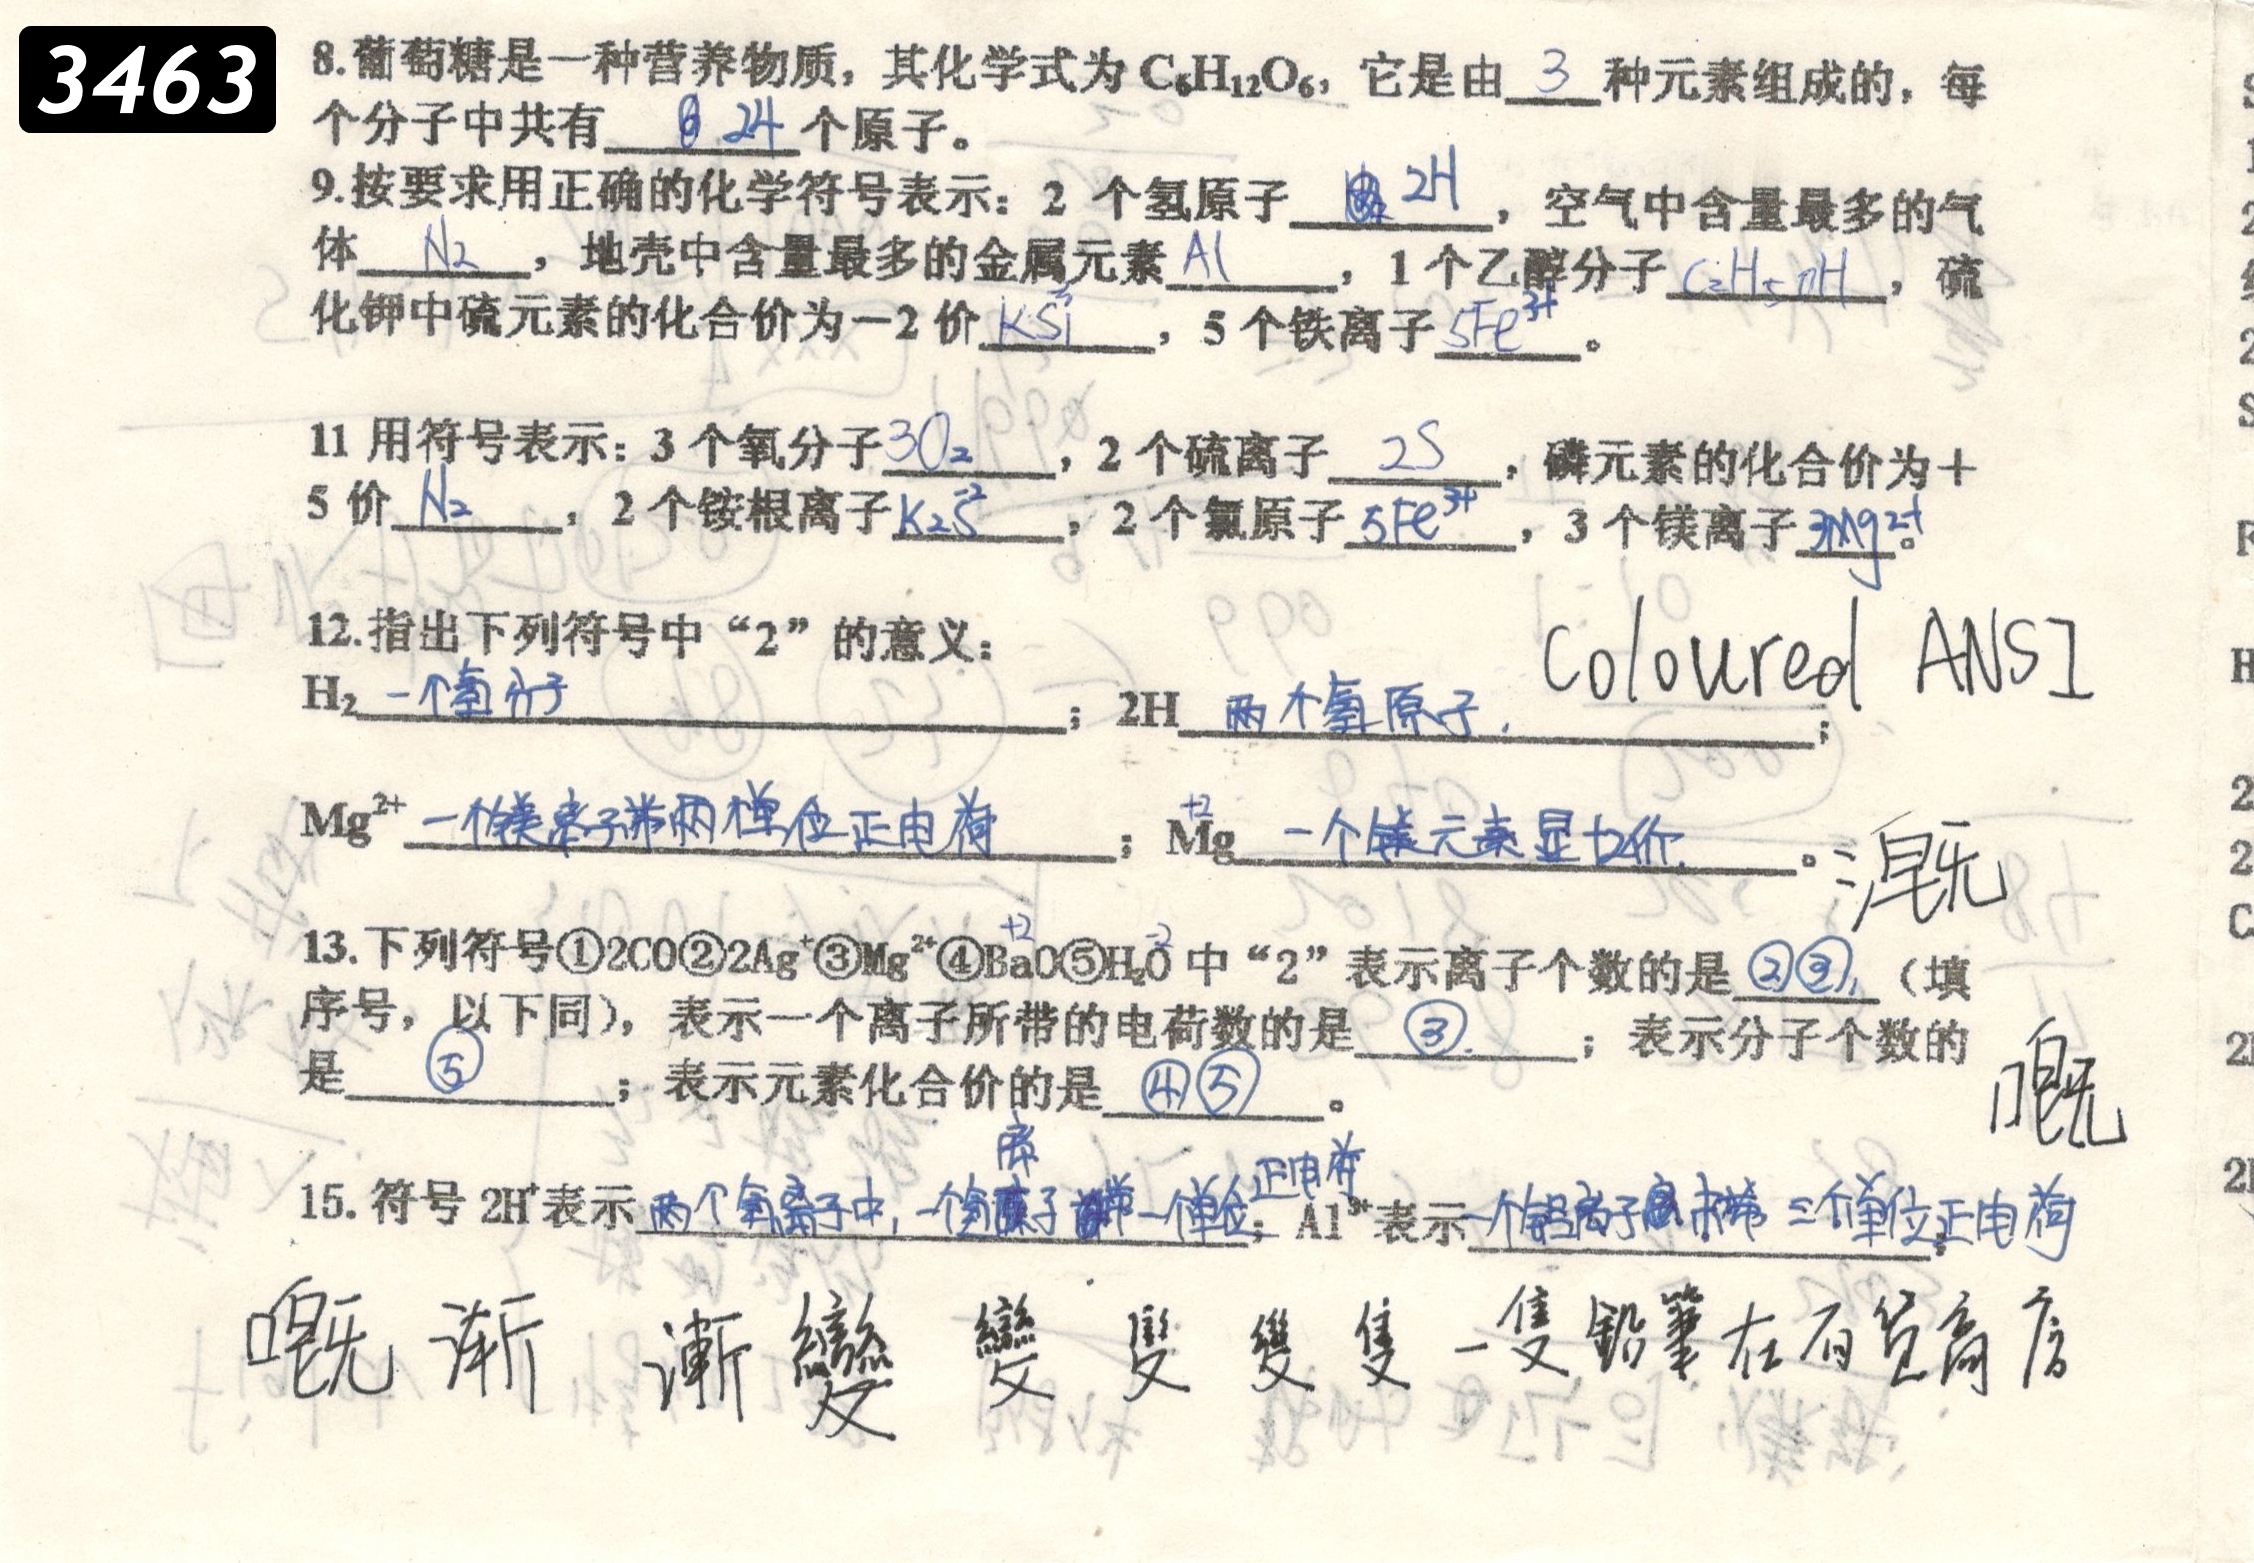 3463
8.葡萄糖是一种营养物质，其化学式为C₆H₁₂O₆，它是由 3 种元素组成的，每
个分子中共有 24 个原子。
9.按要求用正确的化学符号表示：2 个氢原子 2H ，空气中含量最多的气
体 N₂ ，地壳中含量最多的金属元素 Al ，1个乙醇分子 C₂H₅OH ，硫
化钾中硫元素的化合价为－2价 ，5个铁离子 5Fe³⁺ 。
11 用符号表示：3个氧分子 3O₂ ，2个硫离子 2S ，磷元素的化合价为＋
5价 N₂ ，2个铵根离子 K₂S⁻² ，2个氯原子 5Fe³⁺ ，3个镁离子 3Mg²⁺ 。
12.指出下列符号中“2”的意义：
Coloured ANSI
H₂ 一个氢分子 ；2H 两个氢原子. ；
Mg²⁺ 一个镁离子带两个单位正电荷 ；Mg +2 一个镁元素显+2价. 。
溉
13.下列符号①2CO②2Ag⁺③Mg²⁺④BaO +2 ⑤H₂O -2 中“2”表示离子个数的是 ②③. （填
序号，以下同），表示一个离子所带的电荷数的是 ③. ；表示分子个数的
是 ⑤ ；表示元素化合价的是 ④⑤ 。
嘅
15.符号 2H⁺表示 两个氢离子中，一个氢离子带一个单位正电荷 ；Al³⁺表示 一个铝离子带三个单位正电荷 ；
嘅 渐 漸 變 變 隻 雙 隻 一隻鉛筆在百货商店